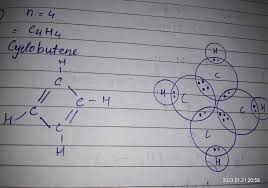 n = 4
= C4H4
Cyclobutene
H
C
C - H
H C
C
H
H
C
H C C H
C
H
2023.01.21 20:58